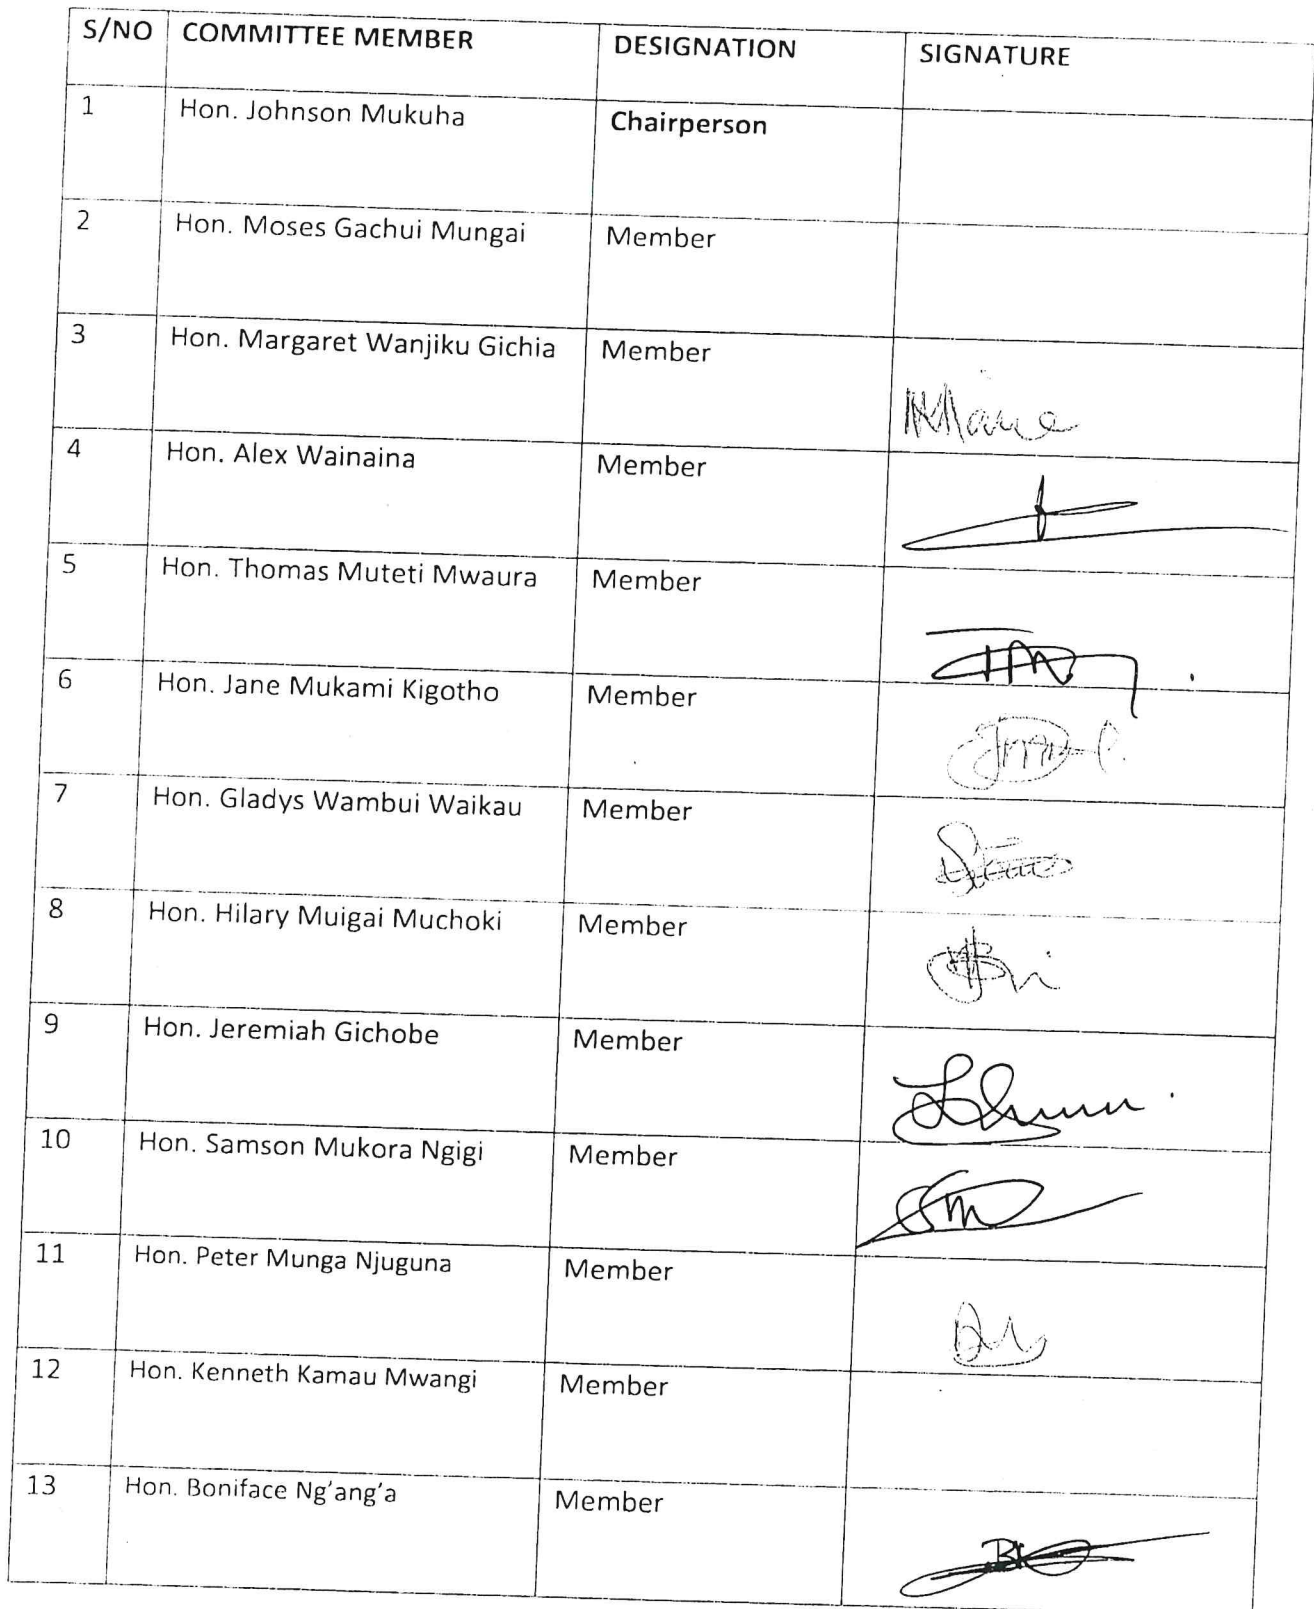 S/NO COMMITTEE MEMBER DESIGNATION SIGNATURE
1 Hon. Johnson Mukuha Chairperson
2 Hon. Moses Gachui Mungai Member
3 Hon. Margaret Wanjiku Gichia Member
4 Hon. Alex Wainaina Member
5 Hon. Thomas Muteti Mwaura Member
6 Hon. Jane Mukami Kigotho Member
7 Hon. Gladys Wambui Waikau Member
8 Hon. Hilary Muigai Muchoki Member
9 Hon. Jeremiah Gichobe Member
10 Hon. Samson Mukora Ngigi Member
11 Hon. Peter Munga Njuguna Member
12 Hon. Kenneth Kamau Mwangi Member
13 Hon. Boniface Ng'ang'a Member